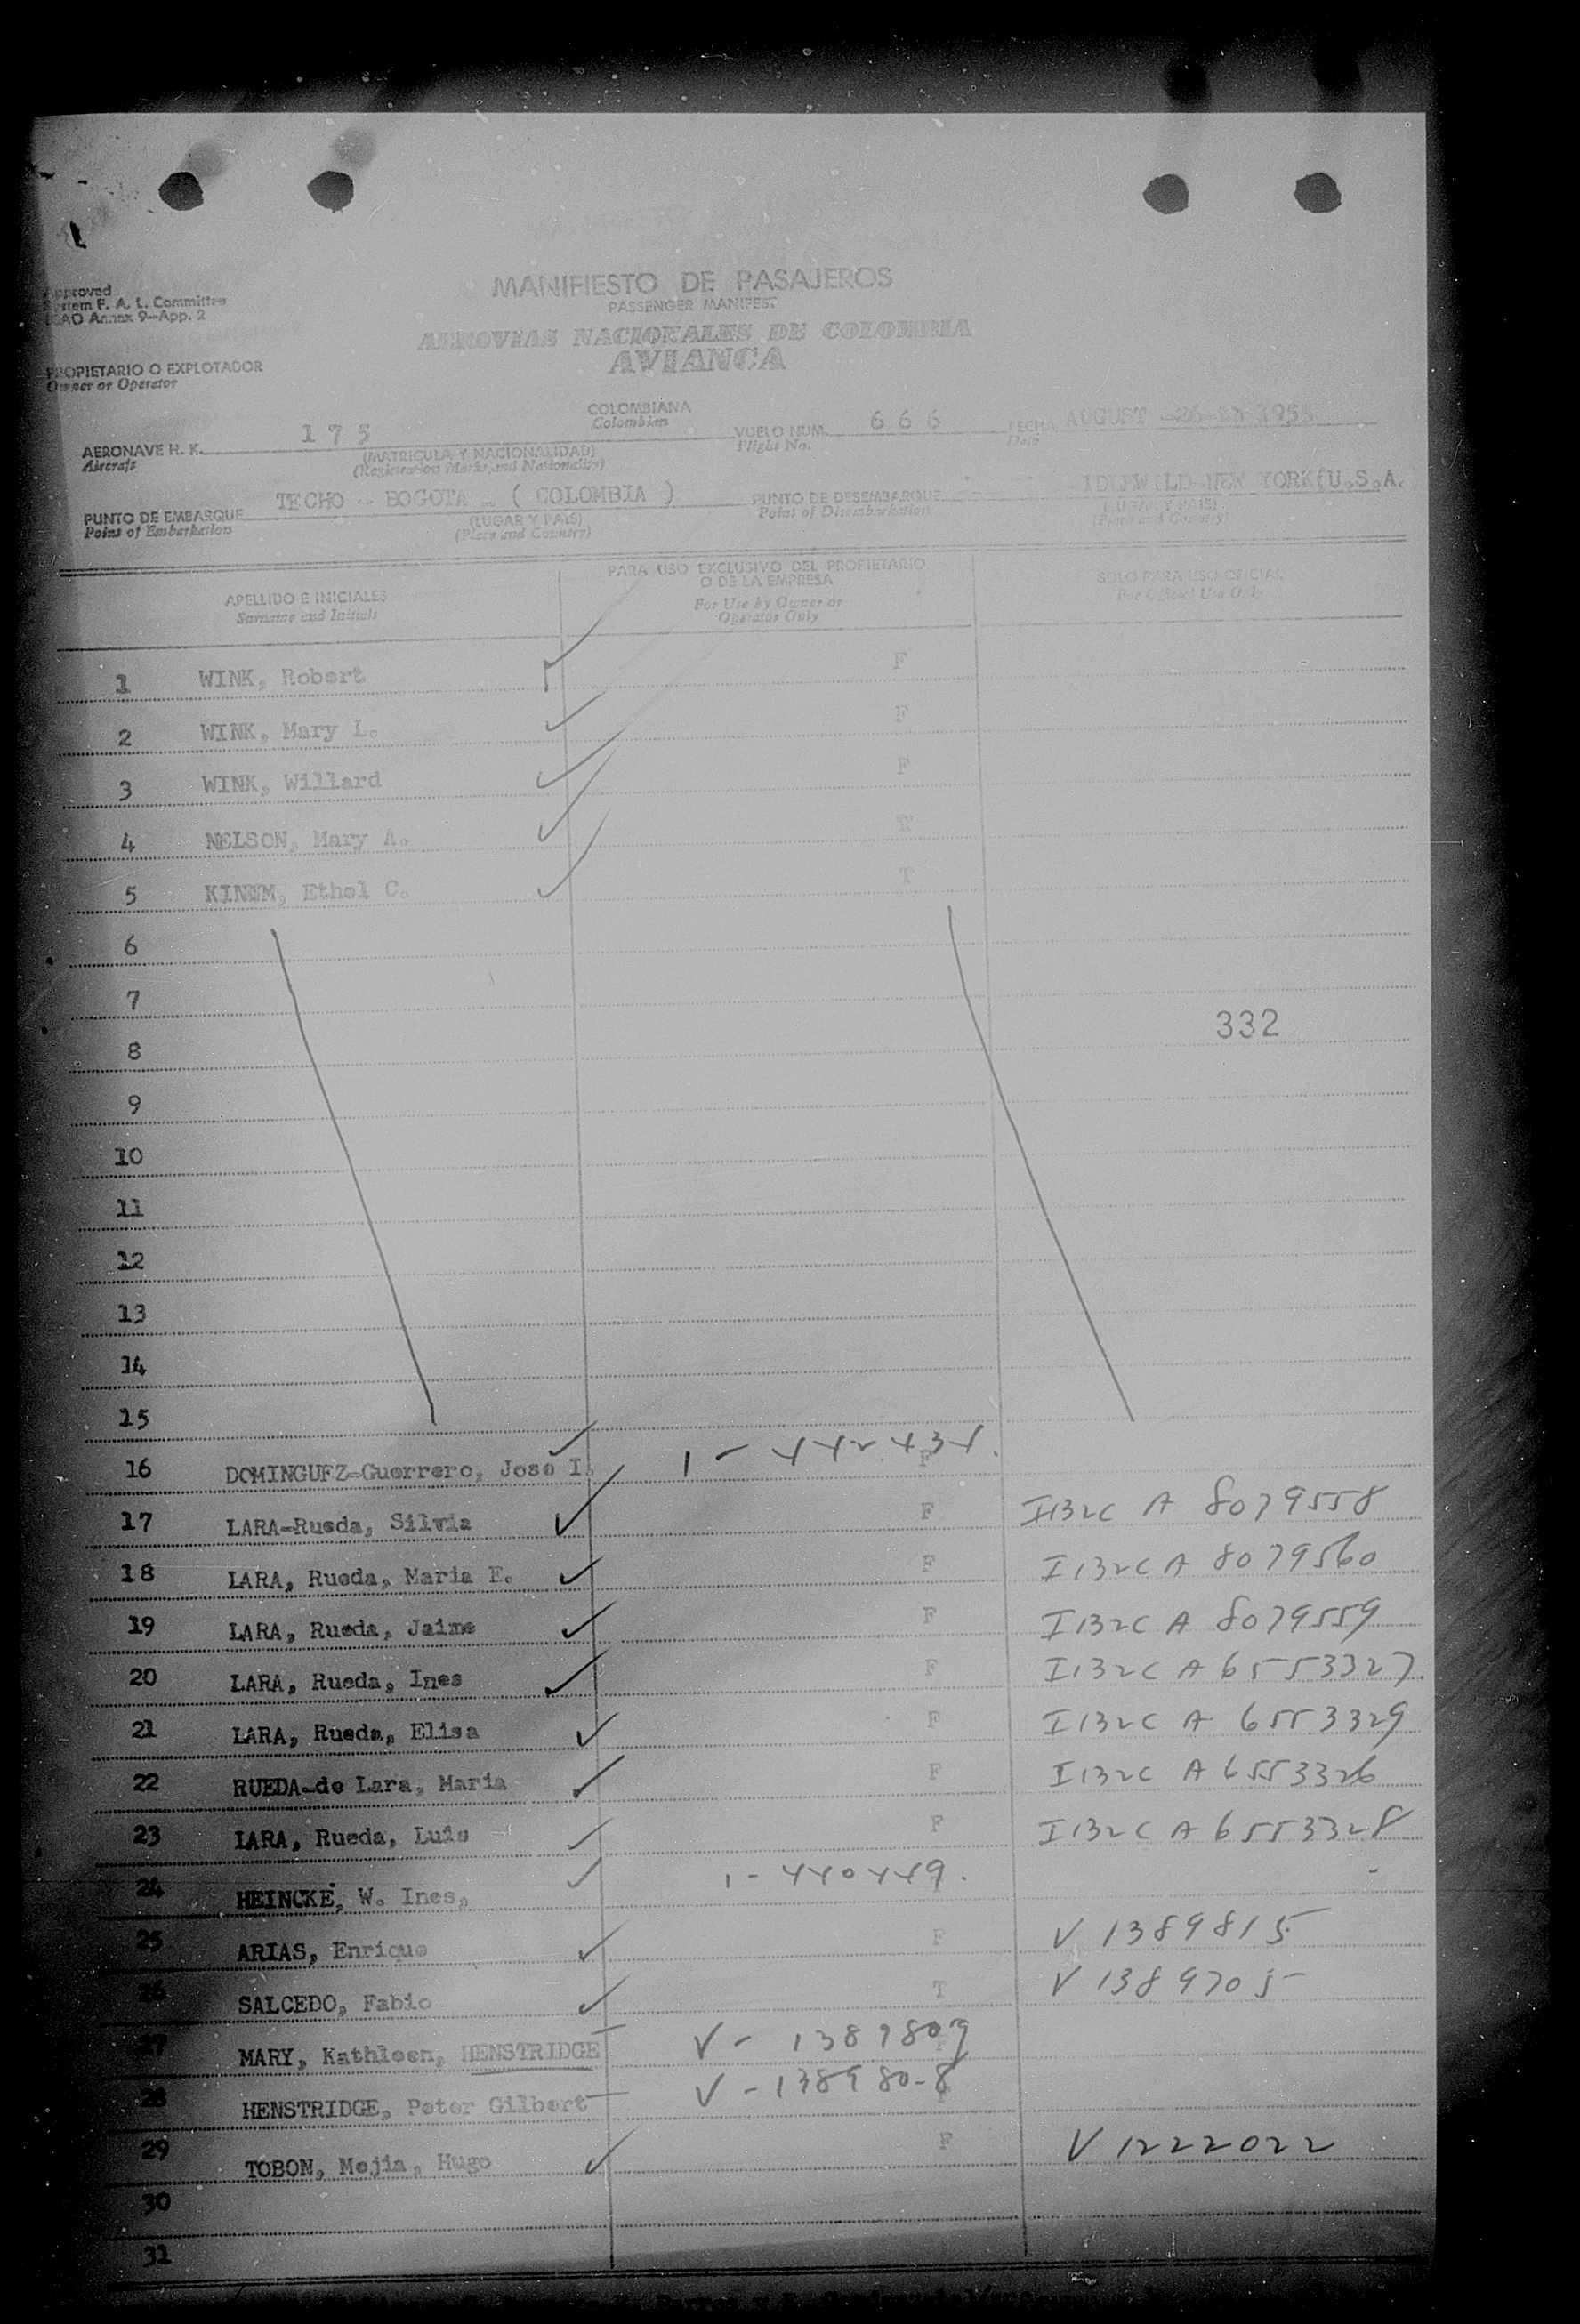 Approved
System F. A. L. Committee
ICAO Annex 9-App. 2
MANIFIESTO DE PASAJEROS
PASSENGER MANIFEST
AEROVIAS NACIONALES DE COLOMBIA
AVIANCA
PROPIETARIO O EXPLOTADOR
Owner or Operator
AERONAVE H. K. 175 COLOMBIANA VUELO NUM. 666 FECHA AUGUST
Aircraft (MATRICULA Y NACIONALIDAD) Colombian Flight No. Date
(Registration Marks and Nationality)
PUNTO DE EMBARQUE TECHO - BOGOTA - ( COLOMBIA ) PUNTO DE DESEMBARQUE IDLEWILD-NEW YORK(U.S.A.
Point of Embarkation (LUGAR Y PAIS) Point of Disembarkation (LUGAR Y PAIS)
(Place and Country) (Place and Country)
APELLIDO E INICIALES PARA USO EXCLUSIVO DEL PROPIETARIO O DE LA EMPRESA SOLO PARA USO OFICIAL
Surname and Initials For Use by Owner or Operator Only For Official Use Only
1 WINK, Robert F
2 WINK, Mary L. F
3 WINK, Willard F
4 NELSON, Mary A.
5 Ethel C. T
6
7
332
8
9
10
11
12
13
14
15
16 DOMINGUEZ-Guerrero, Jose I. 1-442434. F
17 LARA-Rueda, Silvia F I132C A 8079558
18 LARA, Rueda, Maria E. F I132C A 8079560
19 LARA, Rueda, Jaime F I132C A 8079559
20 LARA, Rueda, Ines F I132C A 6553327
21 LARA, Rueda, Elisa F I132C A 6553329
22 RUEDA-de Lara, Maria F I132C A 6553326
23 LARA, Rueda, Luis F I132C A 6553328
24 HEINCKE, W. Ines, 1-440449.
25 ARIAS, Enrique F V 1389815
26 SALCEDO, Fabio T V 1389705
27 MARY, Kathleen, HENSTRIDGE V - 1389809
28 HENSTRIDGE, Peter Gilbert V - 138980-8 F
29 TOBON, Mejia, Hugo F V 1222022
30
31